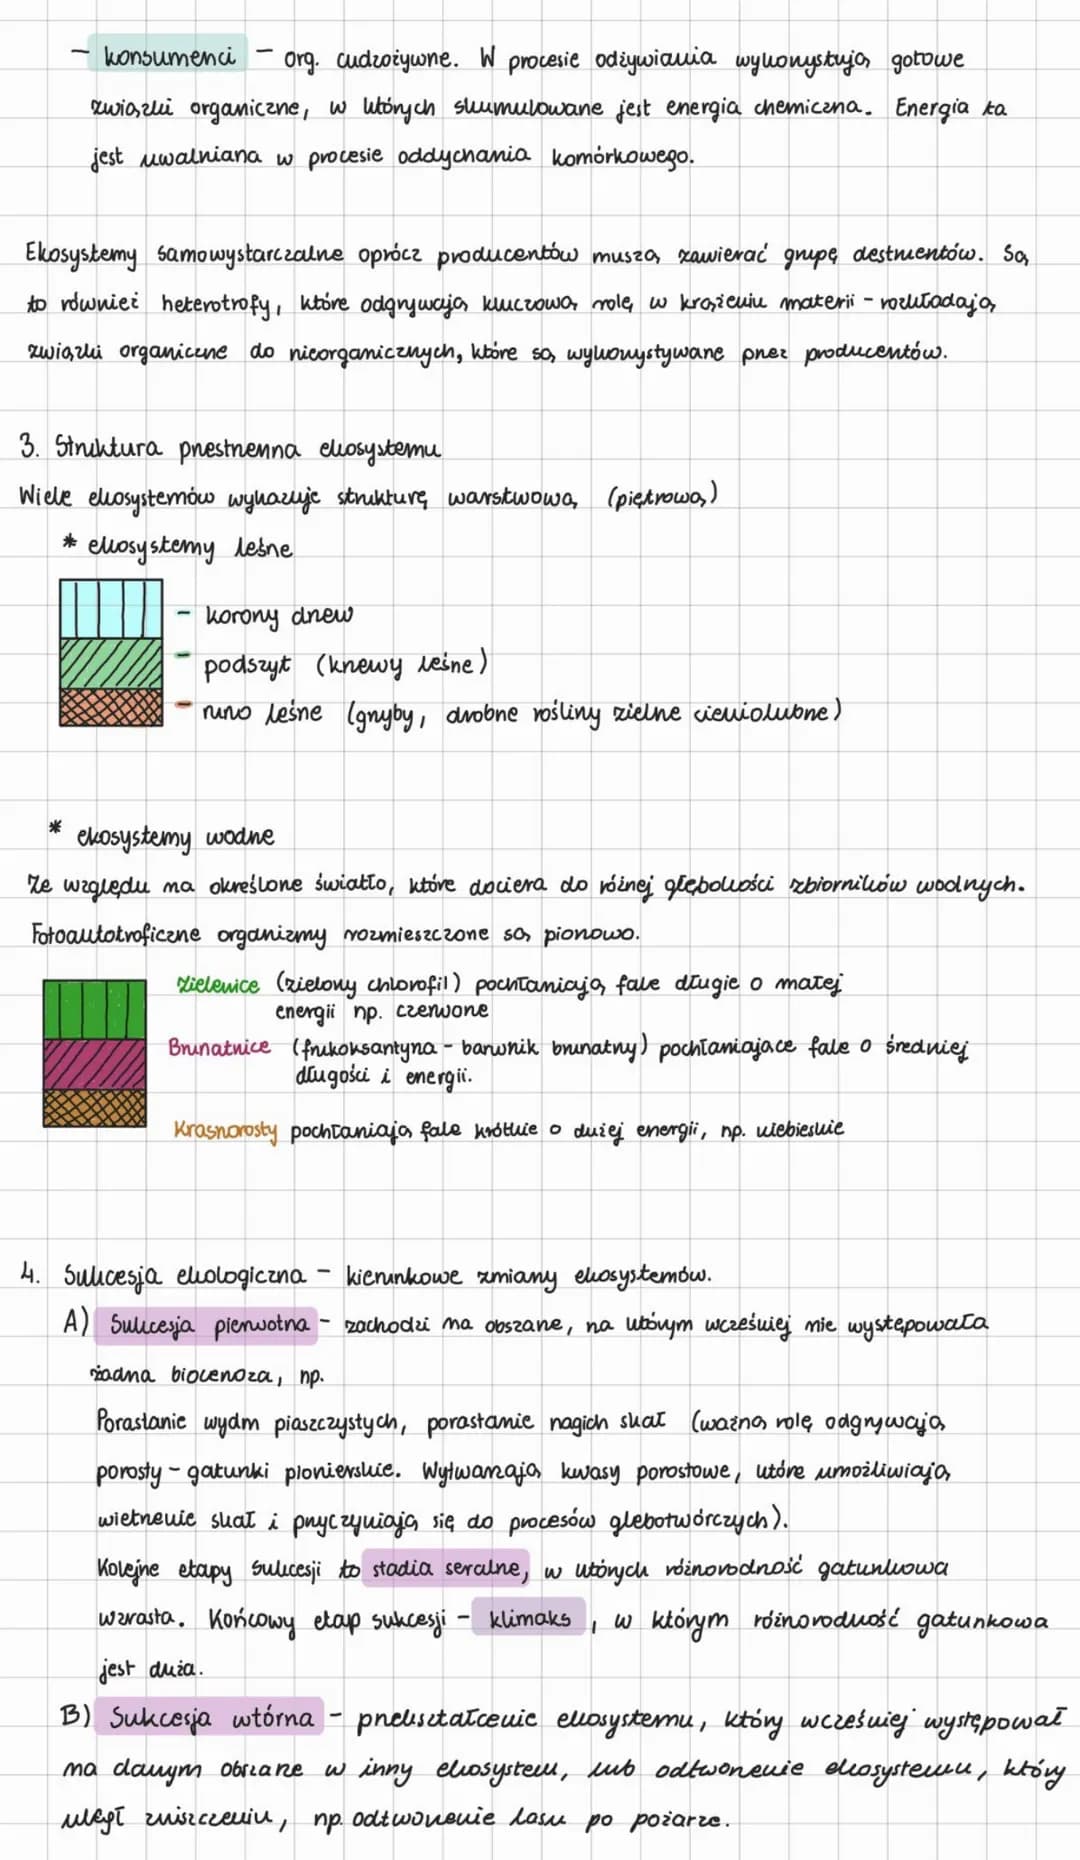 - konsumenci - org. cudzożywne. W procesie odżywiania wykorzystują gotowe
związki organiczne, w których skumulowane jest energia chemiczna. Energia ta
jest uwalniana w procesie oddychania komórkowego.
Ekosystemy samowystarczalne oprócz producentów muszą zawierać grupę destruentów. Są
to również heterotrofy, które odgrywają kluczową rolę w krążeniu materii - rozkładają
związki organiczne do nieorganicznych, które są wykorzystywane przez producentów.
3. Struktura przestrzenna ekosystemu
Wiele ekosystemów wykazuje strukturę warstwową (piętrową)
* ekosystemy leśne
- korony drzew
- podszyt (krzewy leśne)
- runo leśne (grzyby, drobne rośliny zielne cieniolubne)
* ekosystemy wodne
Ze względu na określone światło, które dociera do różnej głębokości zbiorników wodnych.
Fotoautotroficzne organizmy rozmieszczone są pionowo.
Zielenice (zielony chlorofil) pochłaniają fale długie o małej
energii np. czerwone
Brunatnice (frukoksantyna - barwnik brunatny) pochłaniające fale o średniej
długości i energii.
Krasnorosty pochłaniają fale krótkie o dużej energii, np. niebieskie
4. Sukcesja ekologiczna - kierunkowe zmiany ekosystemów.
A) Sukcesja pierwotna - zachodzi na obszarze, na którym wcześniej nie występowała
żadna biocenoza, np.
Porastanie wydm piaszczystych, porastanie nagich skał (ważną rolę odgrywają
porosty - gatunki pionierskie. Wytwarzają kwasy porostowe, które umożliwiają
wietrzenie skał i przyczyniają się do procesów glebotwórczych).
Kolejne etapy sukcesji to stadia seralne, w których różnorodność gatunkowa
wzrasta. Końcowy etap sukcesji - klimaks, w którym różnorodność gatunkowa
jest duża.
B) Sukcesja wtórna - przekształcenie ekosystemu, który wcześniej występował
na danym obszarze w inny ekosystem, lub odtworzenie ekosystemu, który
uległ zniszczeniu, np. odtworzenie lasu po pożarze.